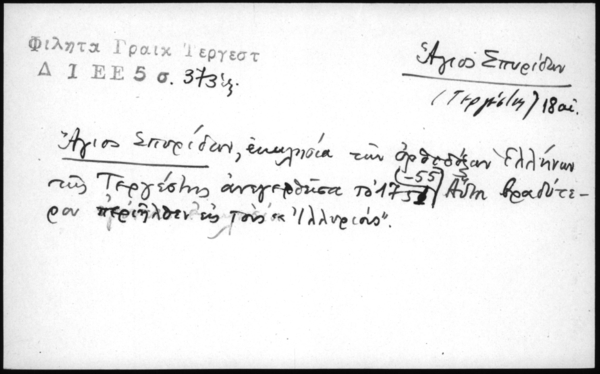 Φιλητα Γραικ Τεργεστ
Δ 1 ΕΕ 5 σ. 373 ἑξ.
Ἅγιος Σπυρίδων
(Τεργέστης) 18 αἰ.
Ἅγιος Σπυρίδων, ἐκκλησία τῶν ὀρθοδόξων Ἑλλήνων
τῆς Τεργέστης ἀνεγερθεῖσα τὸ 1751(-55) Αὕτη βραδύτε-
ρον περιῆλθεν εἰς τοὺς "Ἰλλυριούς".